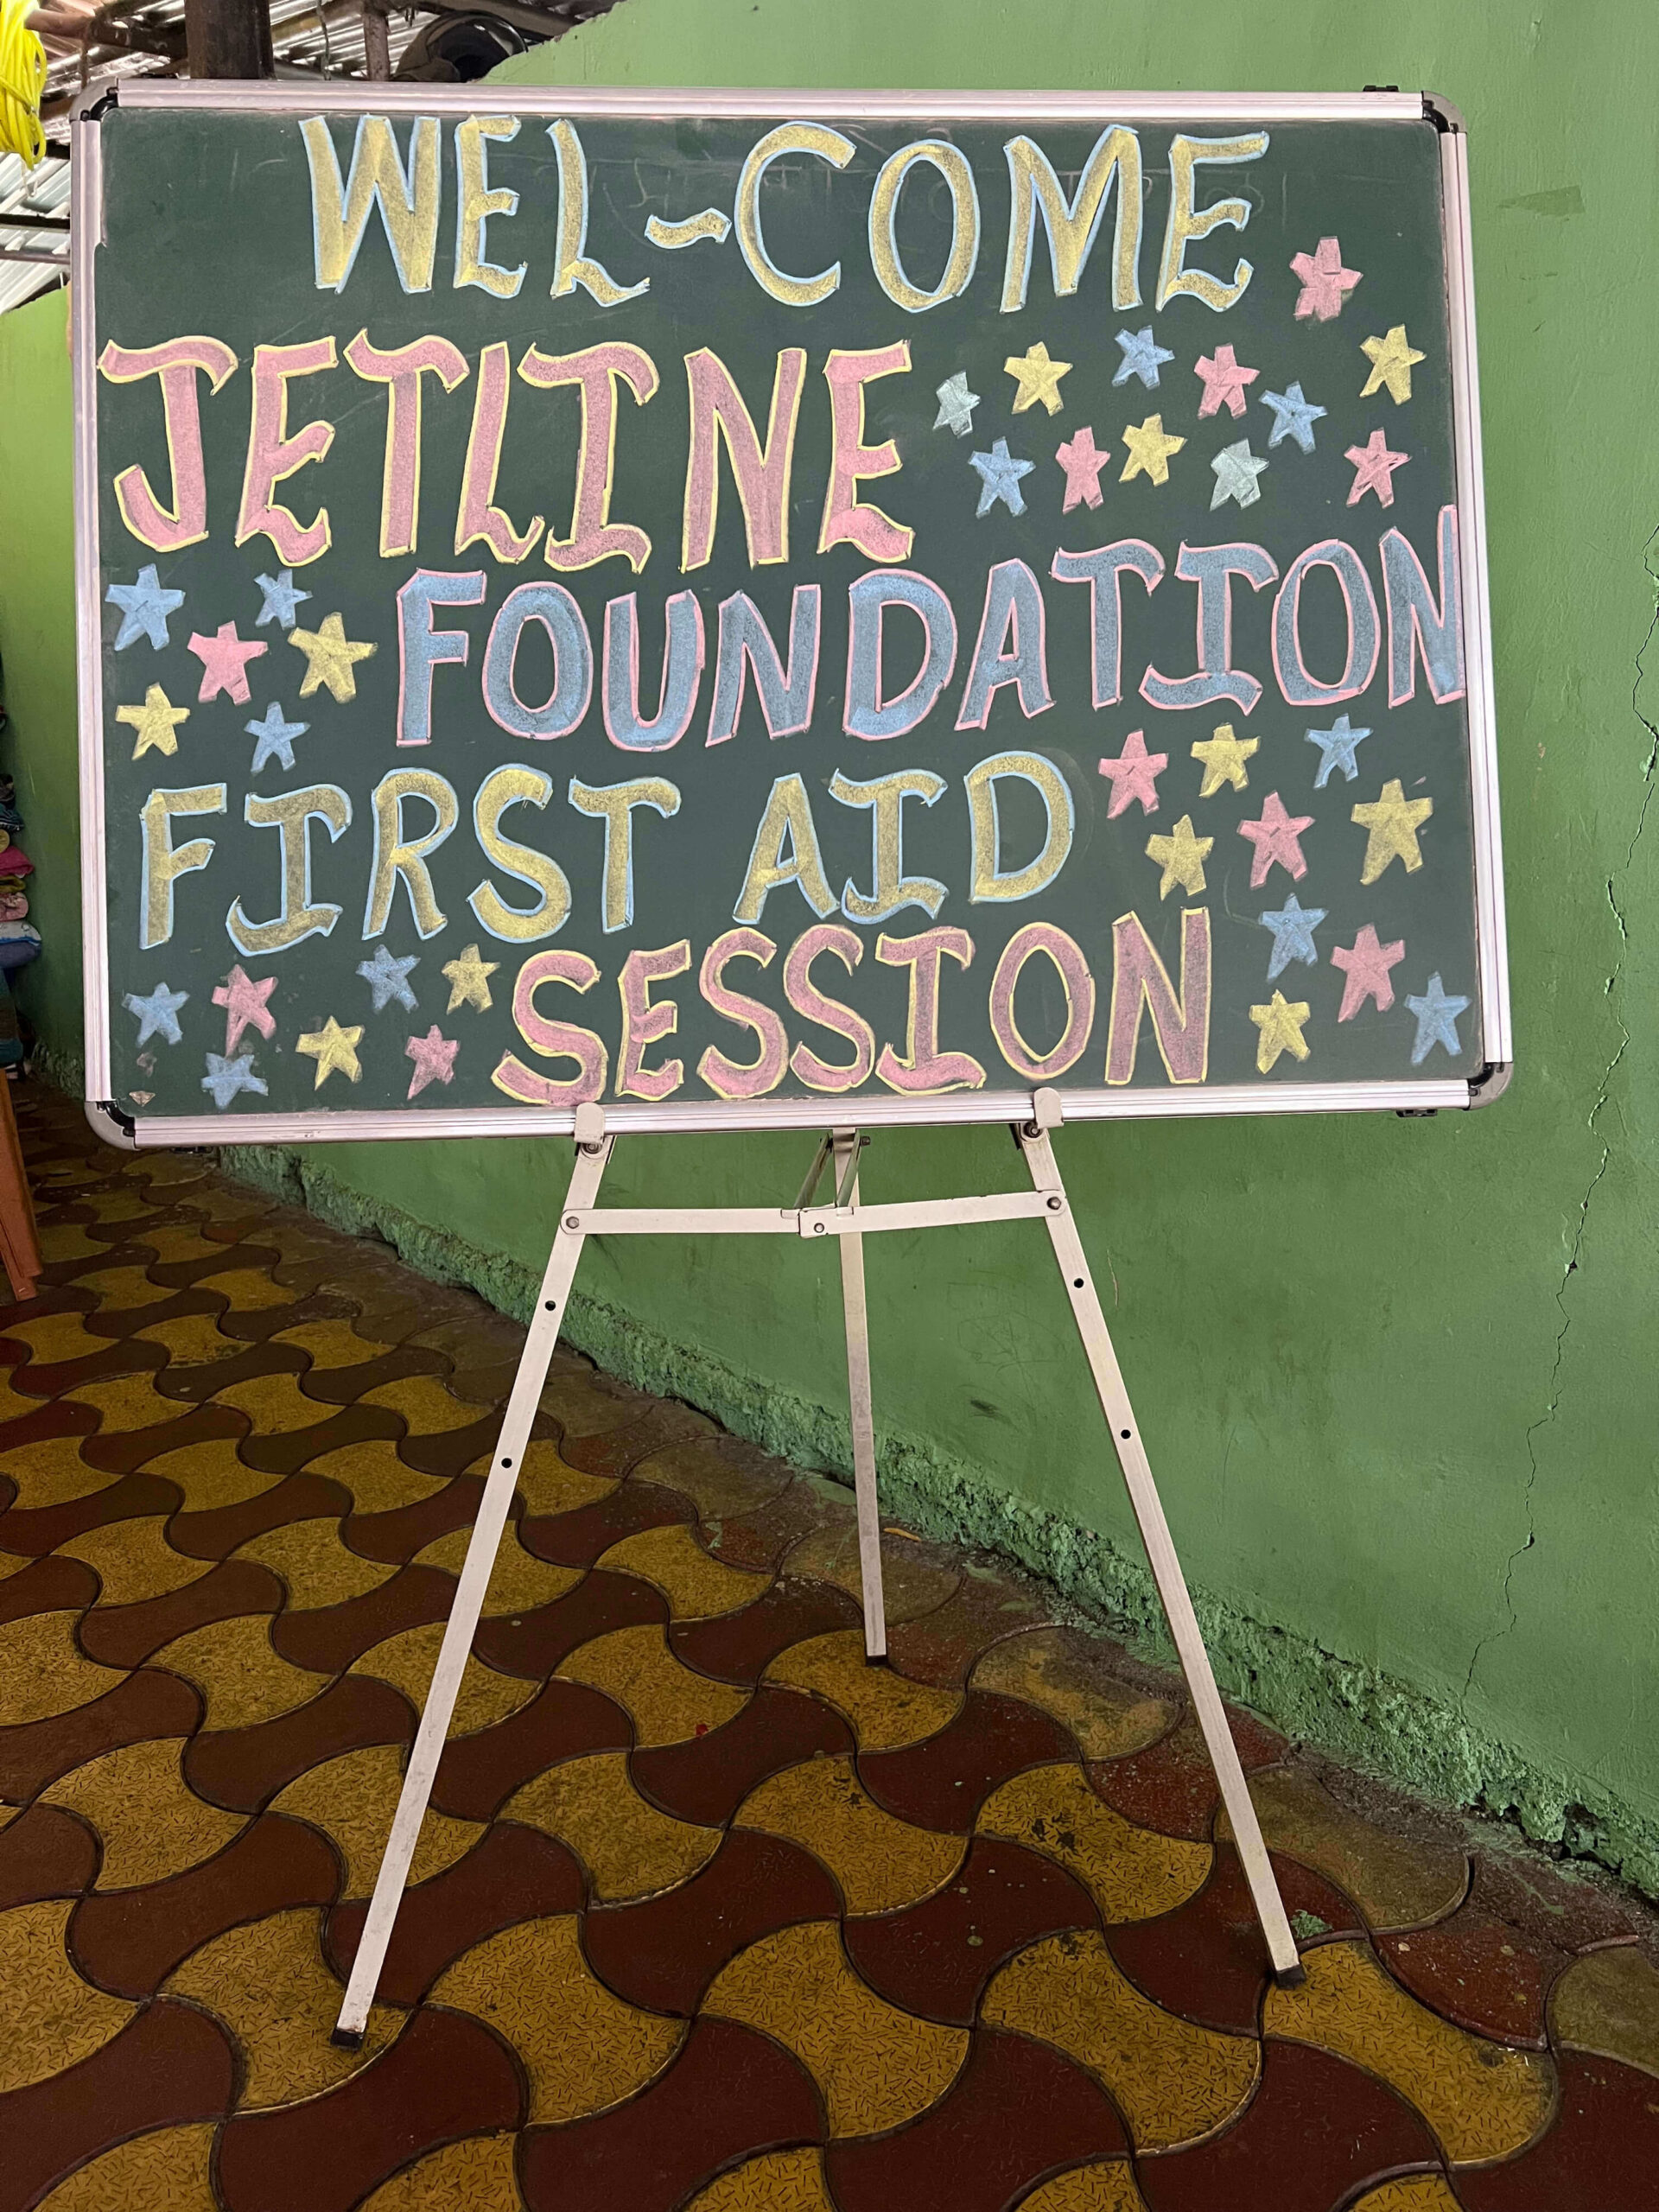 WEL-COME
JETLINE
FOUNDATION
FIRST AID
SESSION